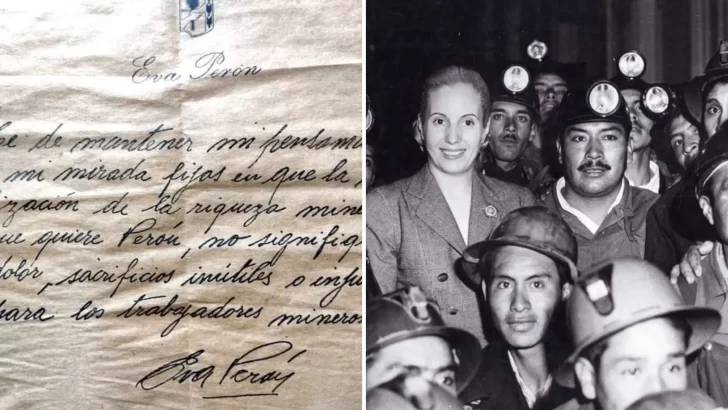 Eva Perón
be de mantener mi pensami
mi mirada fijos en que la
lización de la riqueza mine
ue quiere Perón, no signifiq
dolor, sacrificios inútiles o inju
para los trabajadores mineros
Eva Perón